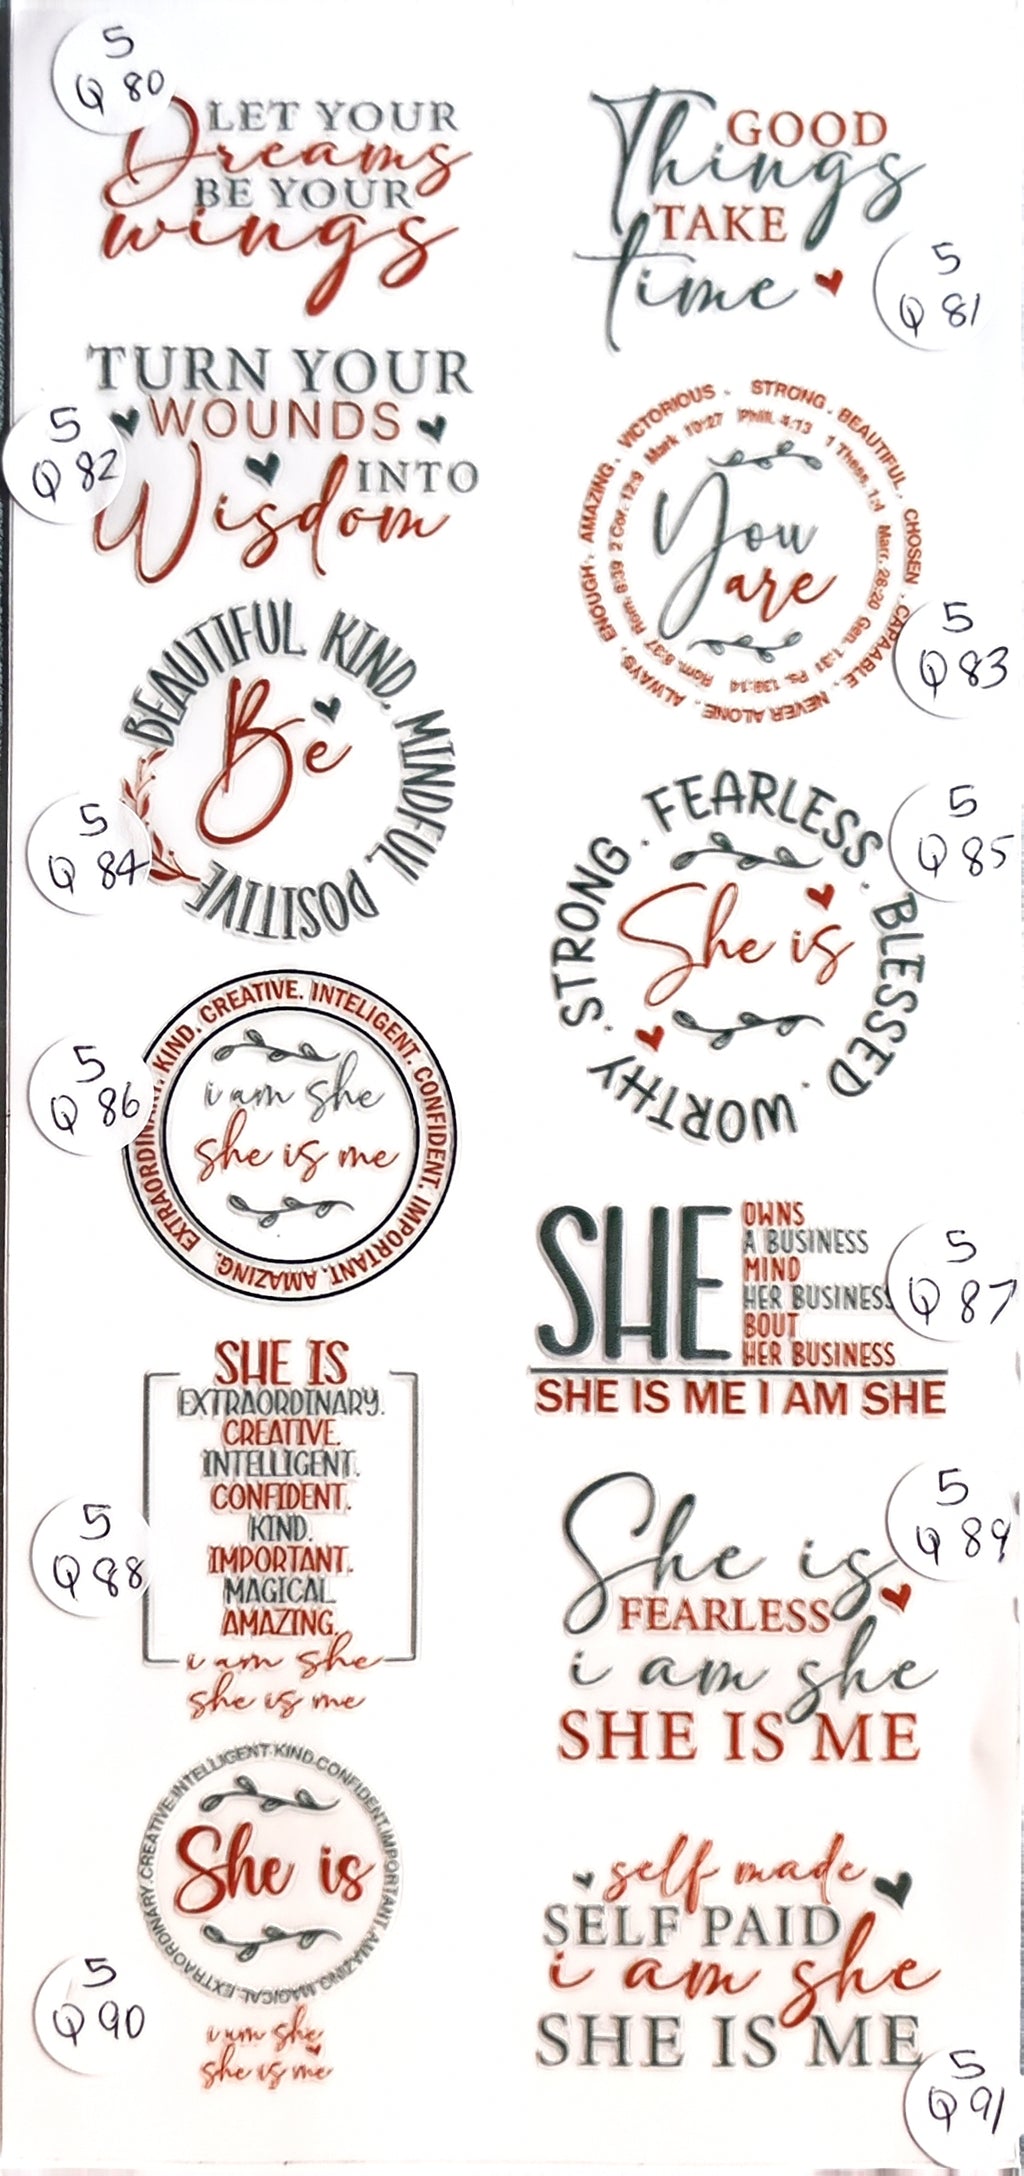 5
Q 80
LET YOUR
Dreams
BE YOUR
wings
GOOD
Things
TAKE
time
5
Q 81
TURN YOUR
WOUNDS
INTO
Wisdom
5
Q 82
STRONG . BEAUTIFUL . CHOSEN . CAPAABLE . NEVER ALONE . ALWAYS . ENOUGH . AMAZING . VICTORIOUS .
PHIL 4:13 1 Thess. 1:4 Marr. 28:20 Gen. 1:31 Ps. 139:14 Rom. 8:37 Rom. 8:39 2 Cor. 12:9 Mark 10:27
You
are
5
Q 83
BEAUTIFUL KIND. MINDFUL POSITIVE
Be
5
Q 84
STRONG . FEARLESS . BLESSED . WORTHY .
She is
5
Q 85
EXTRAORDINARY. KIND. CREATIVE. INTELIGENT. CONFIDENT. IMPORTANT. AMAZING.
i am she
she is me
5
Q 86
SHE
OWNS
A BUSINESS
MIND
HER BUSINESS
BOUT
HER BUSINESS
SHE IS ME I AM SHE
5
Q 87
SHE IS
EXTRAORDINARY.
CREATIVE.
INTELLIGENT.
CONFIDENT.
KIND.
IMPORTANT.
MAGICAL
AMAZING.
i am she
she is me
5
Q 88
She is
FEARLESS
i am she
SHE IS ME
5
Q 89
EXTRAORDINARY.CREATIVE.INTELLIGENT.KIND.CONFIDENT.IMPORTANT.AMAZING.MAGICAL.
She is
i am she
she is me
5
Q 90
self made
SELF PAID
i am she
SHE IS ME
5
Q 91